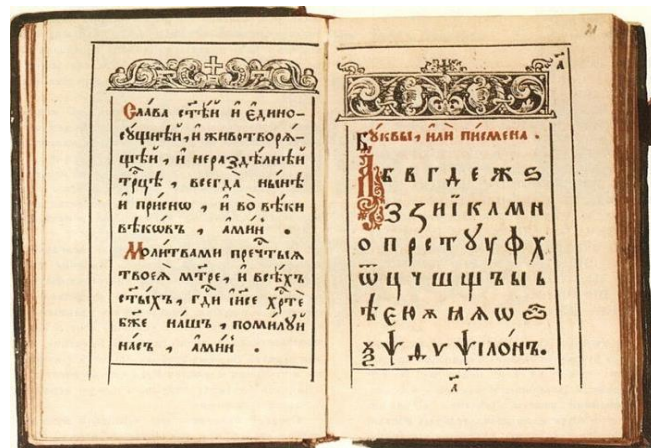 Сла́ва ст҃ѣ́й и҆ є҆дино-
сꙋ́щнѣй, и҆ животворѧ́-
щѣй, и҆ нераздѣ́лнѣй
трⷪ҇цѣ, всегда̀ ны́нѣ
и҆ при́снѡ, и҆ во вѣ́ки
вѣкѡ́въ, а҆ми́нь.
Моли́твами пречⷭ҇тыѧ
твоеѧ̀ мт҃ре, и҆ всѣ́хъ
ст҃ы́хъ, гдⷭ҇и і҆и҃се хрⷭ҇тѐ
бж҃е на́шъ, поми́лꙋй
на́съ, а҆ми́нь.
21
а҃
Бꙋ́квы, и҆лѝ пи́смена.
А Б В Г Д Е Ж Ѕ
З Ꙁ И Ї К Л М Н
О П Р С Т Ꙋ У Ф Х
Ѿ Ц Ч Ш Щ Ъ Ы Ь
Ѣ Є Ю Ѫ Ꙗ Ѧ Ѡ
Ѯ Ѱ Ѳ Ѵ Ѱїло́нъ.
а҃